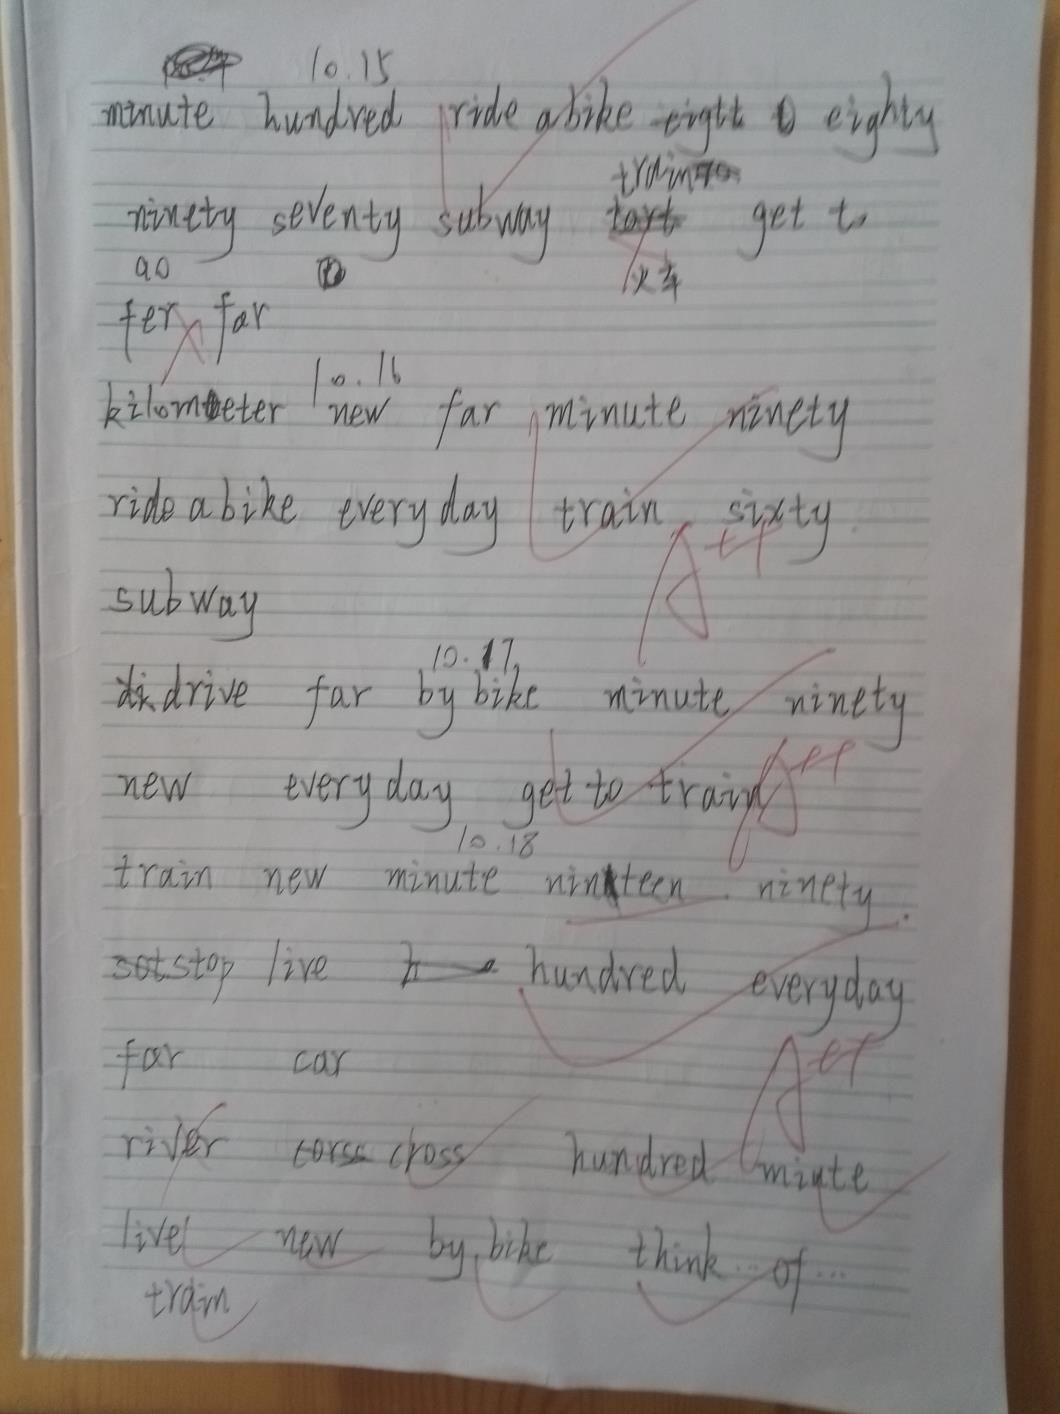 10.15
minute hundred ride a bike eight eighty
train
ninety seventy subway tart get to
90 火车
fer far
10.16
kilometer new far minute ninety
ride a bike everyday train sixty
A++
subway
10.17
di drive far by bike minute ninety
new everyday get to train A++
10.18
train new minute nineteen ninety
sot stop live hundred everyday
far car A++
river corss cross hundred miute
live new by bike think ... of ...
train